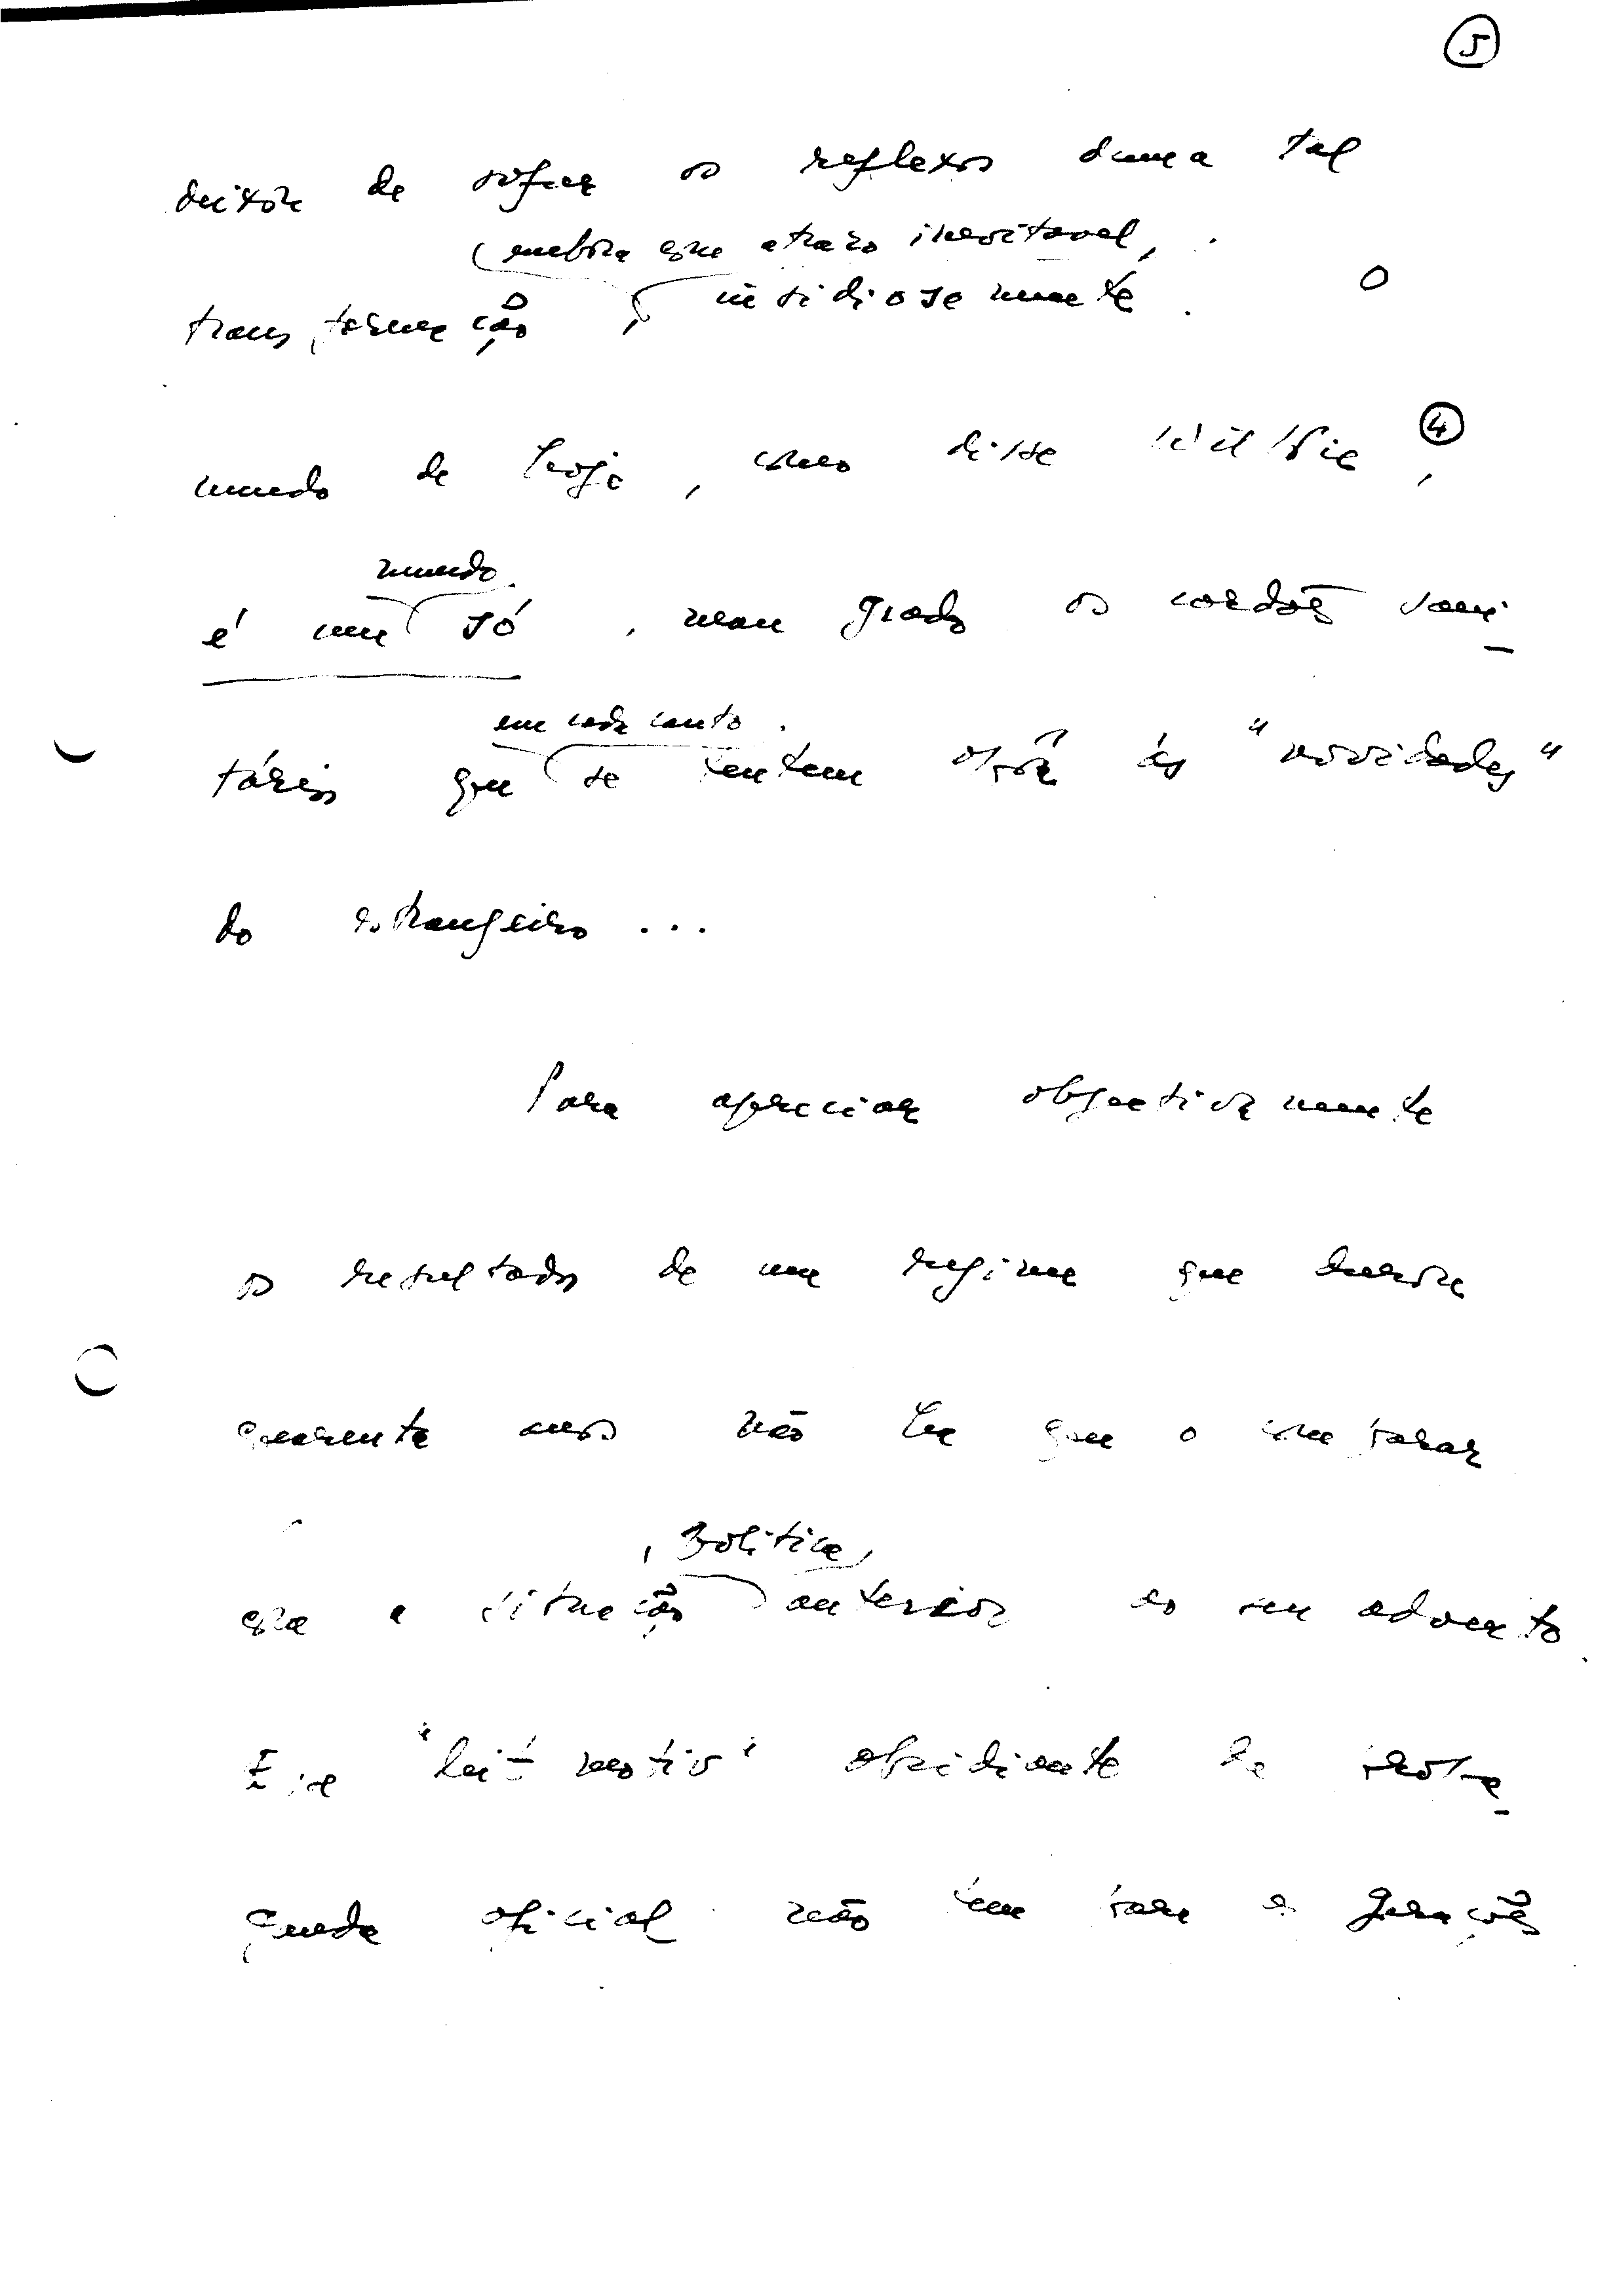 5
deixar de sofrer os reflexos duma tal
(embora com atrazo inevitavel,
transformação, insidiosamente. O
mundo de hoje, como disse Willkie, 4
mundo
é um só, mau grado os cordões sani-
em cada canto
tários que se tentem opôr ás "novidades"
do estrangeiro...
Para apreciar objectivamente
os resultados de um regime que durou
quarenta anos não há que o comparar
politica,
com a situação anterior ao seu advento.
Esse "leit-motiv" obsidiante da propa-
ganda oficial não tem para as gerações